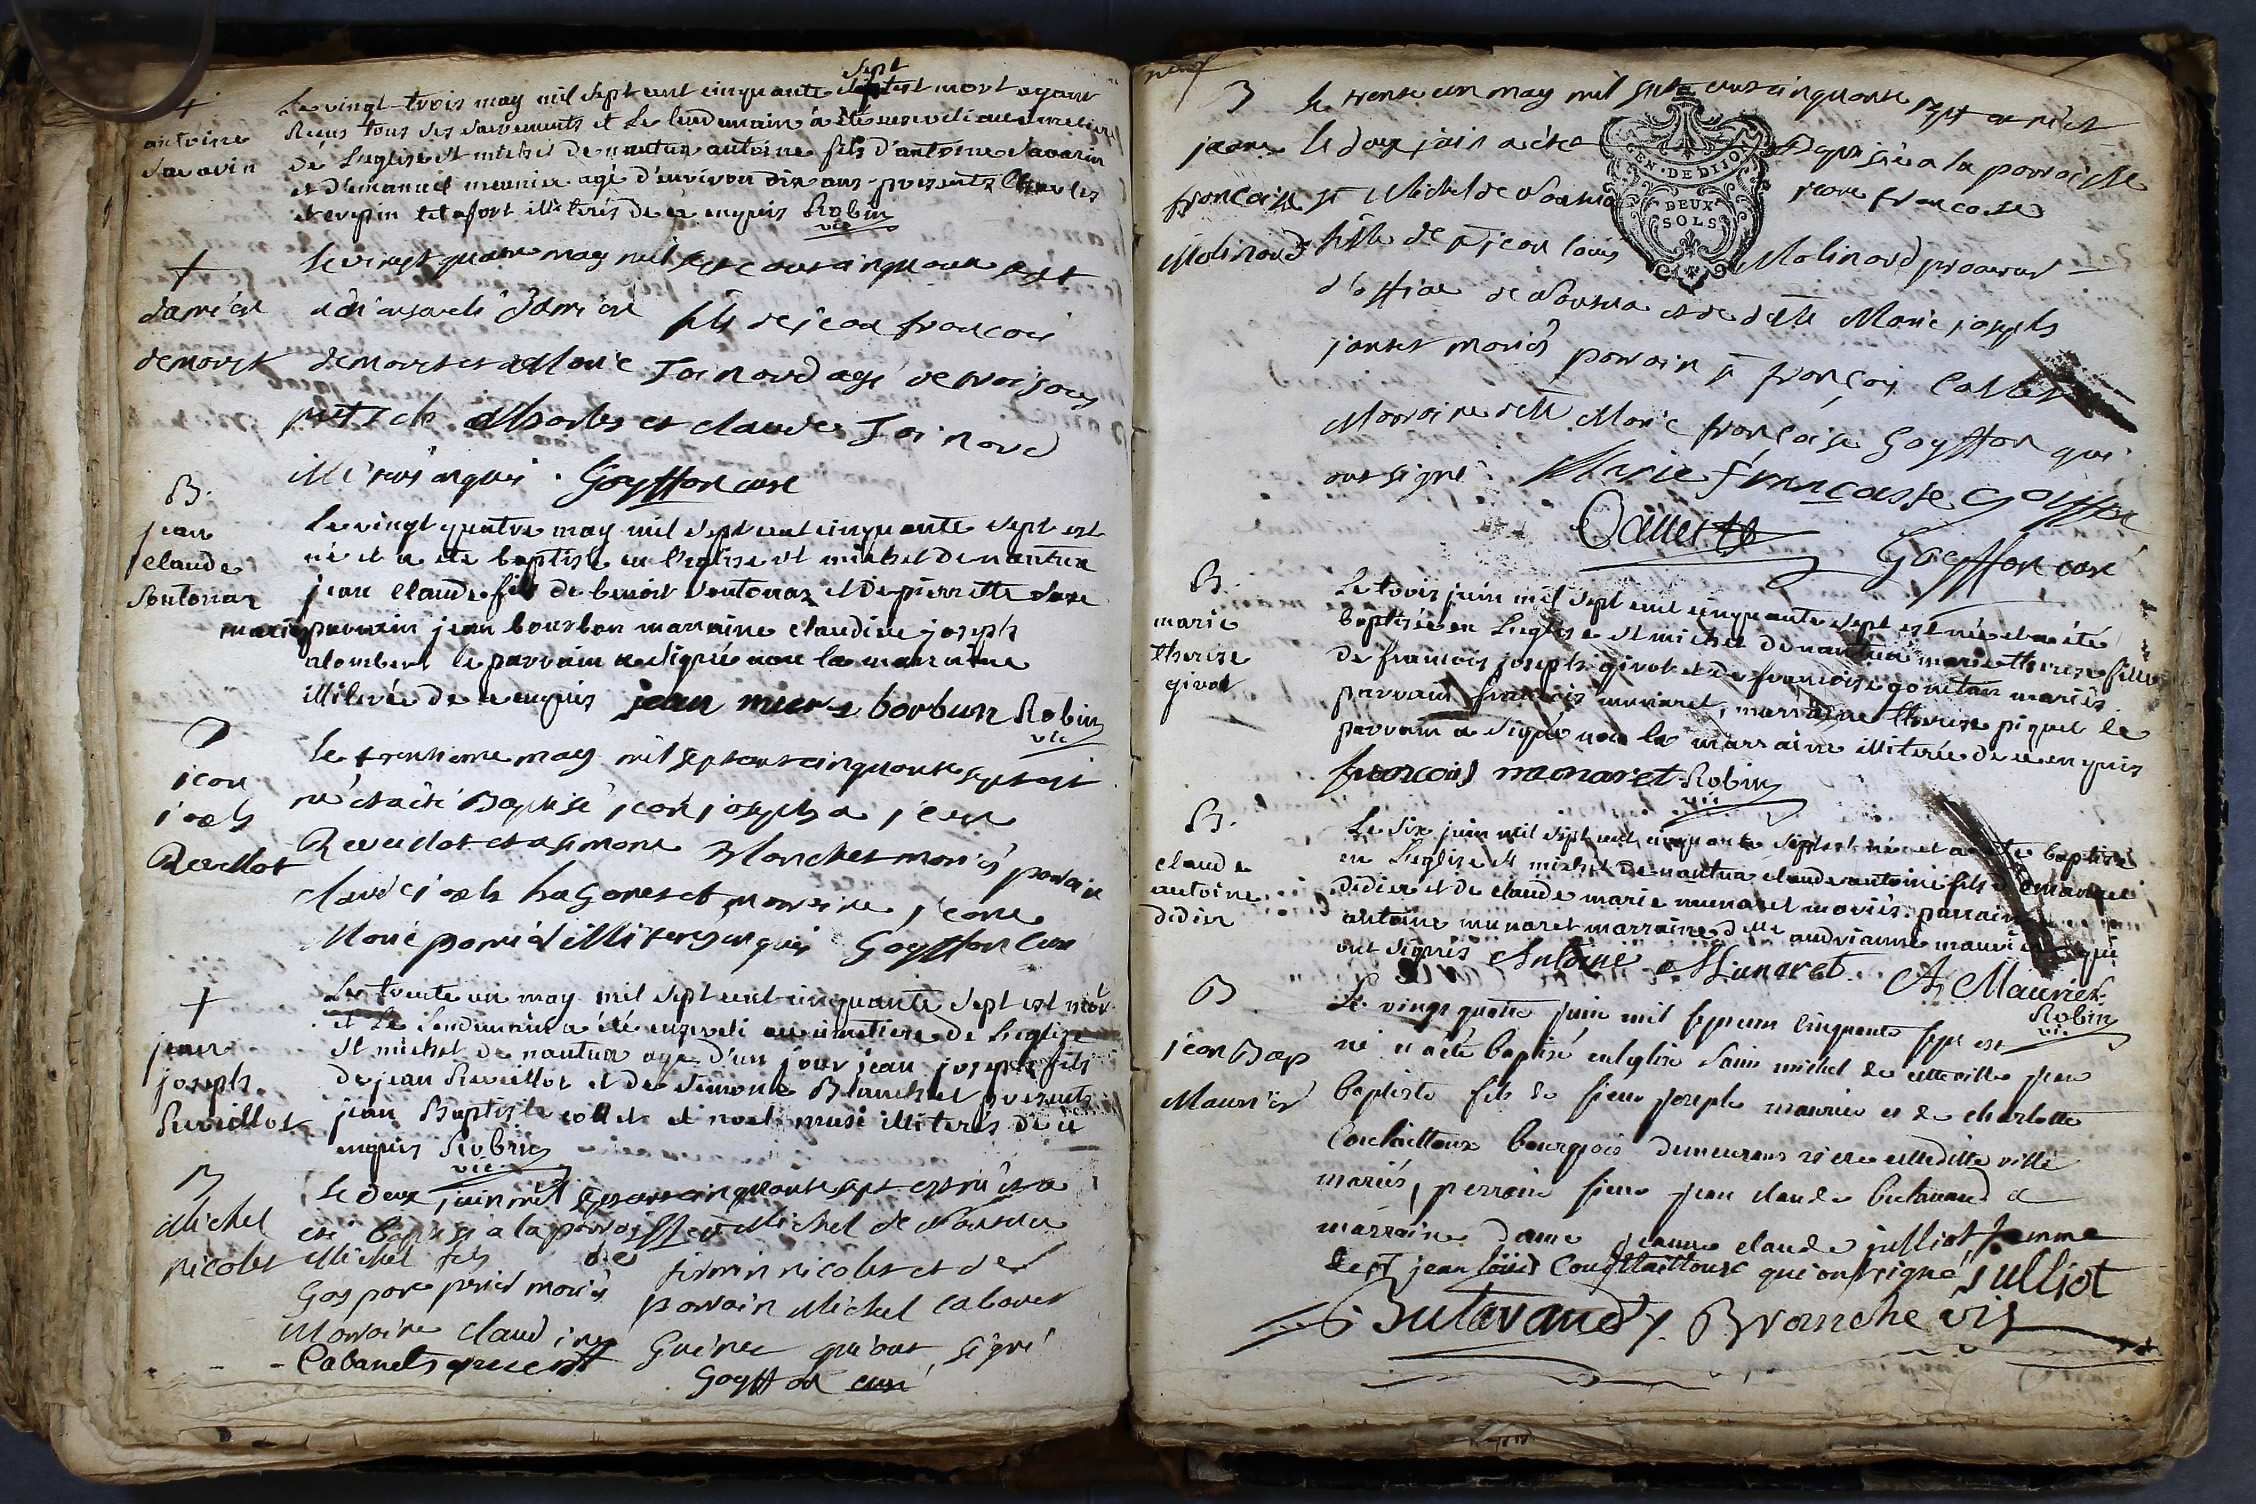 +
antoine
Savarin
Le vingt trois may mil sept cent cinquante sept est mort ayant
Reçus tous ses sacrements et Le lendemain a été enseveli au cimetiere
de L'eglise st michel de nantua antoine fils d'antoine Savarin
et d'emanuel meunier agé d'environ dix ans presents Charles
illiterés de ce enquis Robin
vic
+
damien
demorst
Le vingt quatre may mil sept cent cinquante sept
a été enseveli damien fils de jean françois
demorst et de Marie Joinard agé de trois jours
Charles et claude Joinard
illiterés enquis. Goyffon curé
B.
jean
claude
Sontonax
Le vingt quatre may mil sept cent cinquante sept est
né et a été baptisé en l'eglise st michel de nantua
jean claude fils de benoit Sontonax et de pierrette
mariés parrain jean bourbon marraine claudine joseph
alombert le parrain a signé non la marraine
illiterée de ce enquis jean borbun Robin
vic
B
jean
joseph
Revillot
Le trentieme may mil sept cent cinquante sept est
né et a été Baptisé jean joseph a jean
Reveillot et a simone Blanchet mariés parrain
joseph marraine jeane
Marie illiteres enquis Goyffon curé
+
jean
joseph
Reveillot
Le trente un may mil sept cent cinquante sept est mort
et Le Lendemain a été enseveli au cimetiere de L'eglize
st michel de nantua agé d'un jour jean joseph fils
de jean Reveillot et de Simone Blanchet presents
jean Baptiste collet et noel musi illiterés de ce
enquis Robin
vic
B
Michel
nicolet
Le deux juin mil sept cent cinquante sept est né et a
été baptisé a la paroisse st Michel de Nantua
Michel fils de firmin nicolet et de
Gaspare mariés parrain Michel Cabanet
Marraine claudine Guinet qui ont signé
Cabanet Goyffon curé
B
jeane
françoise
Molinard
Le trente un may mil sept cent cinquante sept est née et
le deux juin a été Baptisée a la paroisse
st Michel de Nantua jeane françoise
fille de sr jean louis Molinard procureur
d'office de Nantua et de delle Marie joseph
jantet mariés parrain sr françois Callet
Marraine delle Marie françoise Goyffon qui
ont signé Marie françoisse Goiffon
Callet
Goyffon curé
GEN. DE DIJON
DEUX
SOLS
B.
marie
therese
girod
Le trois juin mil sept cent cinquante sept est née et a été
baptisée en L'eglise st michel de nantua marie therese fille
de francois joseph girod et de francoise mariés
parrain francois munaret, marraine therese piquet le
parrain a signé non la marraine illiterée de ce enquis
francois munaret Robin
vic
B.
claude
antoine
didier
Le six juin mil sept cent cinquante sept est né et a été baptisé
en L'eglise st michel de nantua claude antoine fils d'emanuel
didier et de claude marie munaret mariés. parrain
antoine munaret marraine delle andrianne maurier qui
ont signés Antoine Munaret A. Maurier
Robin
vic.
B
jean Bap
Maurier
Le vingt quatre juin mil sept cent cinquante sept est
né et a été baptisé en l'eglise Saint michel de cette ville jean
baptiste fils de sieur joseph maurier et de charlotte
bourgeois demeurans rière cette ditte ville
mariés, perrain sieur jean claude butavand et
marraine dame jeanne claude julliot femme
de sr jean louis qui ont signé, julliot
Butavand Branche vic